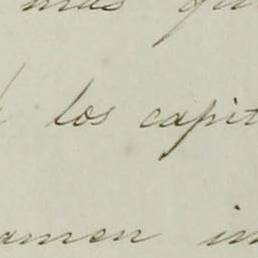 mas
los capit
amen in